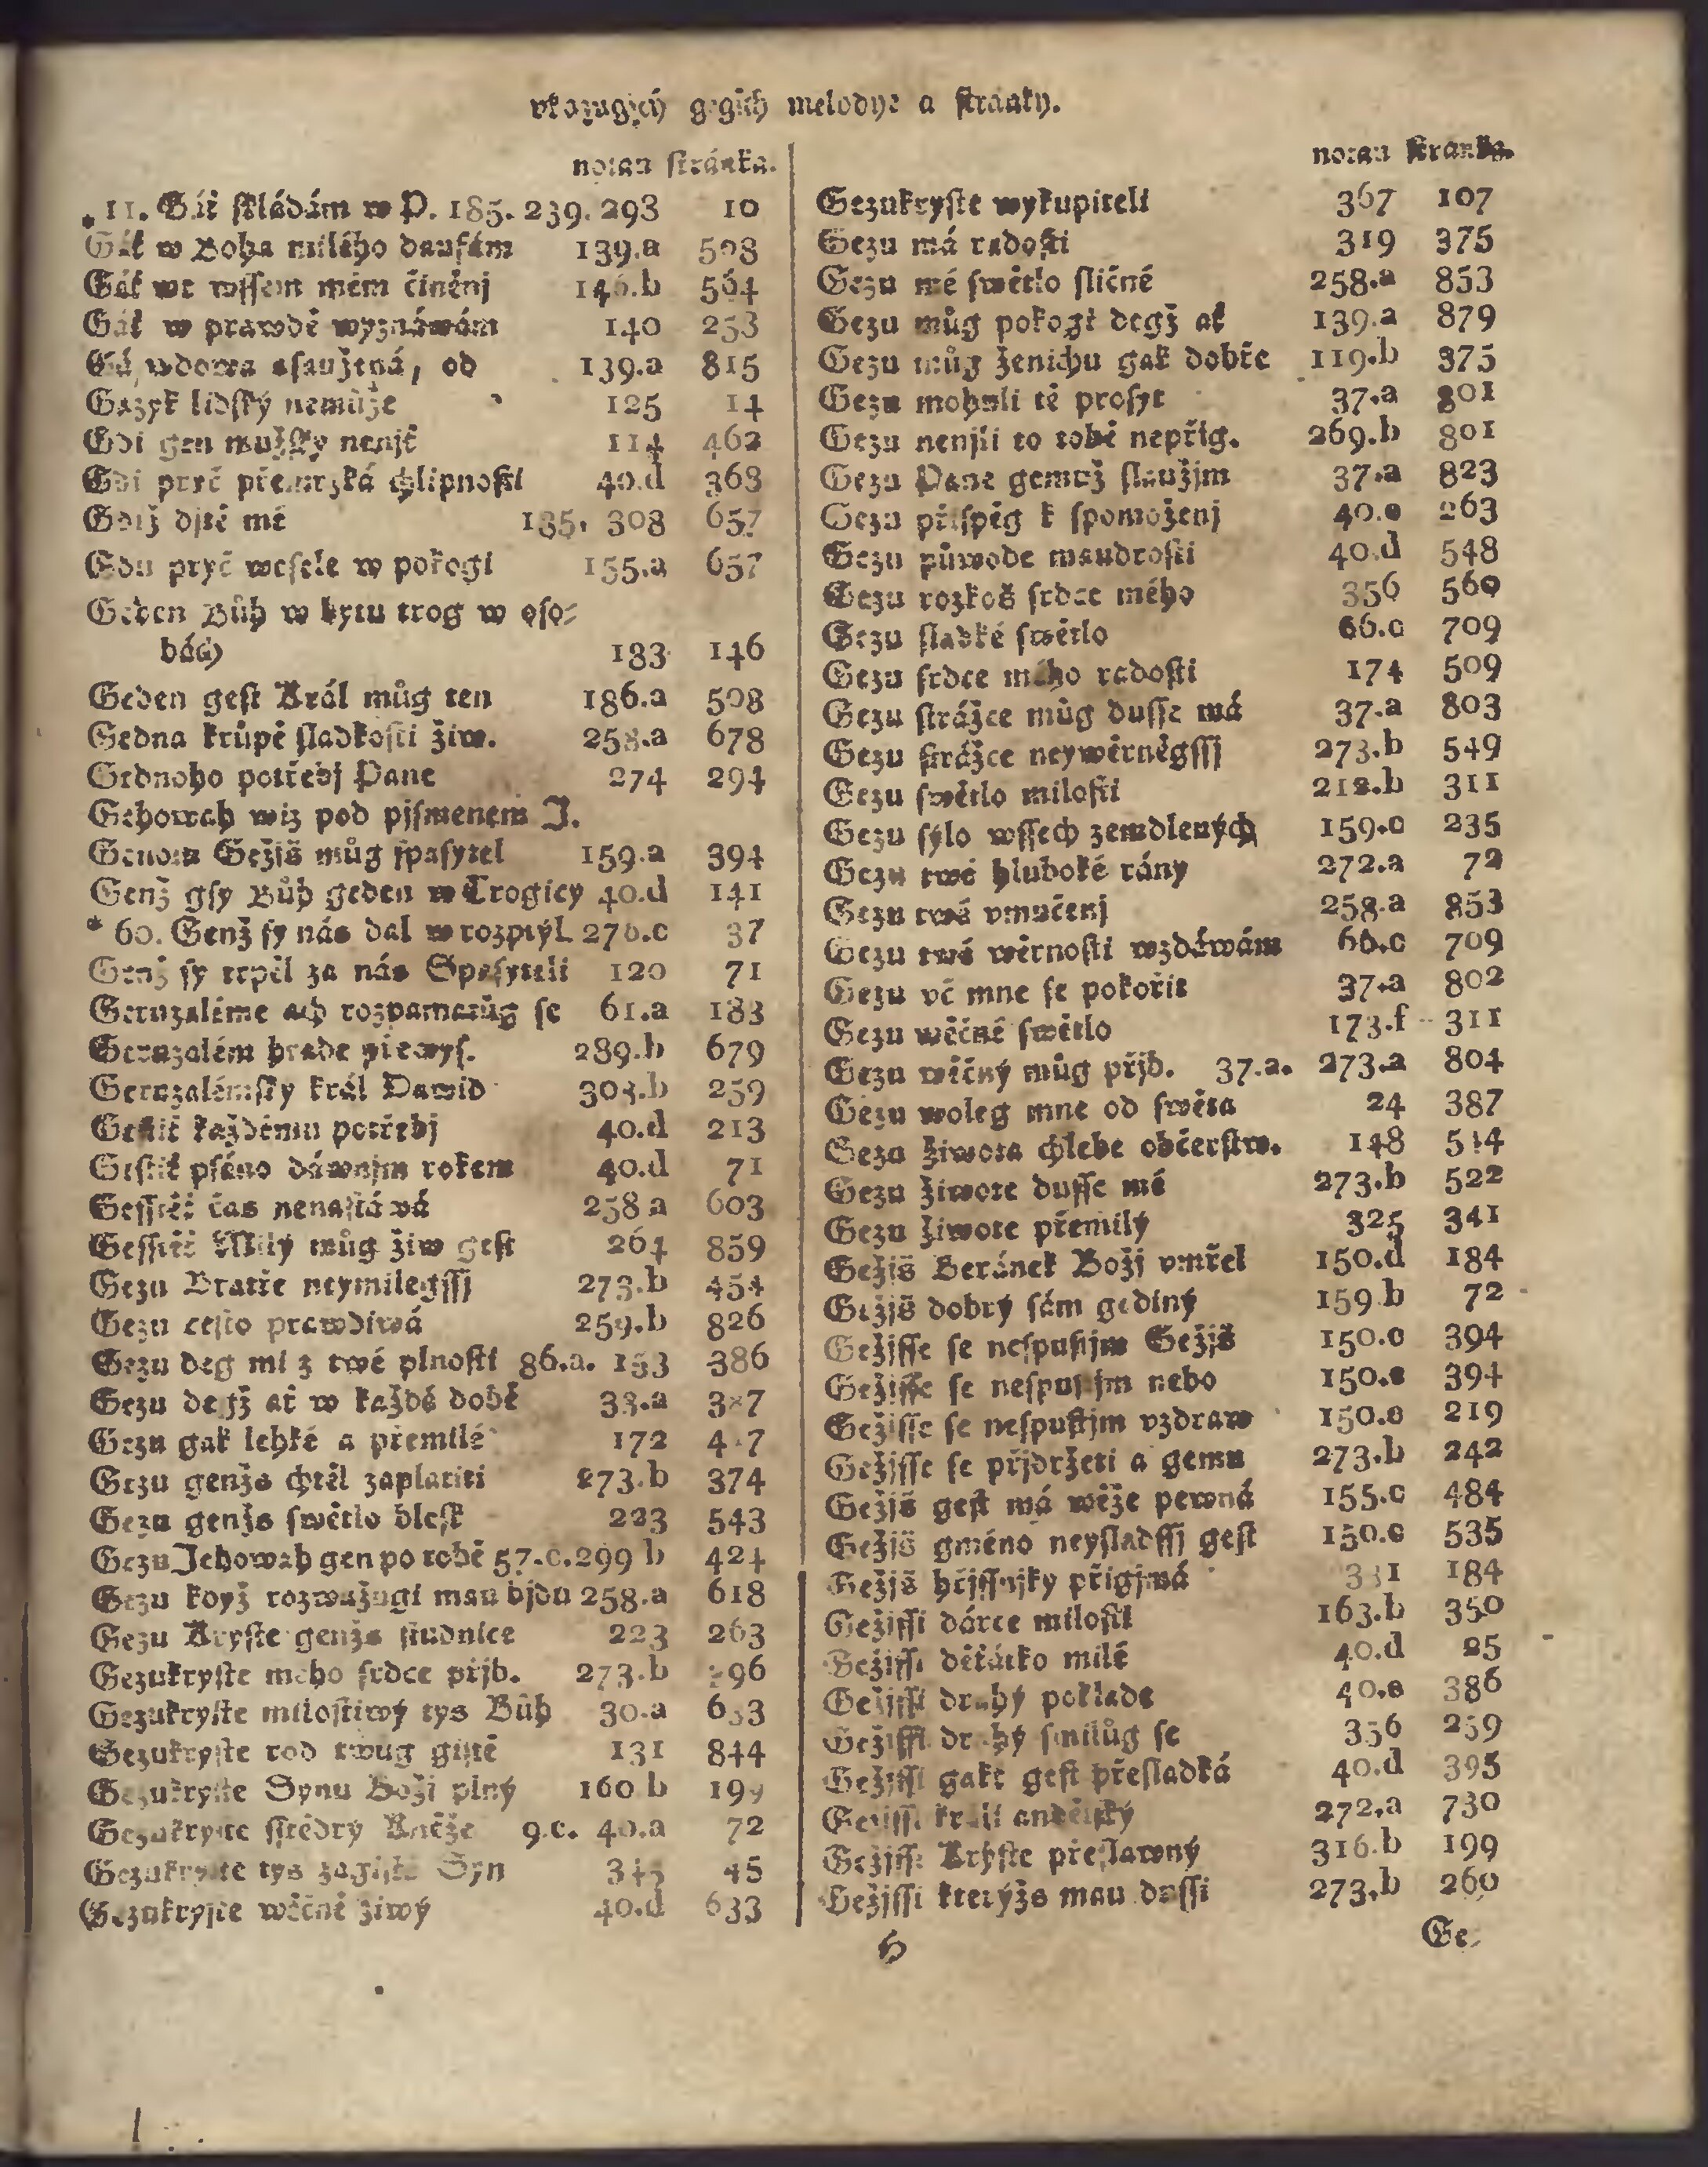 vkazugjcý gegich melodye a stránky.
notau stránka.
* 11. Gáť skládám w P. 185. 239. 293 10
Gáť w Boha milého daufám 139.a 508
Gáť we wssem mém činěnj 146.b 564
Gáť w prawdě wyznáwám 140 253
Gá wdowa osaužená, od 139.a 815
Gazyk lidský nemůže 125 14
Gdi gen mužsky nenjť 114 462
Gdi pryč přemrzká chlipnosti 40.d 363
Gdiž djtě mé 135. 308 657
Gdu pryč wesele w pokogi 155.a 657
Geden Bůh w bytu trog w oso-
bách 133 146
Geden gest Král můg ten 186.a 508
Gedna krůpě sladkosti žiw. 258.a 678
Gednoho potřebj Pane 274 294
Gehowah wiz pod pjsmenem J.
Genom Gežjš můg spasytel 159.a 394
Genž gsy Bůh geden w Trogicy 40.d 141
* 60. Genž sy nás dal w rozptýl. 276.c 37
Genž sy trpěl za nás Spasyteli 120 71
Geruzaléme ach rozpamatůg se 61.a 183
Geruzalém hrade prewys. 289.b 679
Geruzalémský král Dawid 303.b 259
Gestiť každému potřebj 40.d 213
Gestiť psáno dáwnjm rokem 40.d 71
Gessteť čas nenastáwá 258.a 603
Gessteť Milý můg žiw gest 264 859
Gezu Bratře neymilegssj 273.b 454
Gezu cesto prawdiwá 259.b 826
Gezu deg mi z twé plnosti 86.a. 153 386
Gezu degž ať w každé době 33.a 387
Gezu gak lehké a přemilé 172
Gezu genžs chtěl zaplatiti 273.b 374
Gezu genžs swětlo blesk 223 543
Gezu Jehowah gen po tobě 57.c. 299 b 424
Gezu když rozwažugi mau bjdu 258.a 618
Gezu Kryste genžs studnice 223 263
Gezukryste meho srdce přjb. 273.b 296
Gezukryste milostiwý tys Bůh 30.a 633
Gezukryste rod twug gistě 131 844
Gezukryste Synu Boži plný 160 b 199
Gezukryste sstědrý Kněže 9.c. 40.a 72
Gezukryste tys zagisté Syn 45
Gezukryste wěčně žiwý 40.d 633
notau stranka.
Gezukryste wykupiteli 367 107
Gezu má radosti 319 375
Gezu mé swětlo sličné 258.a 853
Gezu můg pokogi degž ať 139.a 879
Gezu můg ženichu gak dobře 119.b 375
Gezu mohuli tě prosyt 37.a 801
Gezu nenjli to tobě nepřig. 269.b 801
Gezu Pane gemuž slaužjm 37.a 823
Gezu přispěg k spomoženj 40.e 263
Gezu původe maudrosti 40.d 548
Gezu rozkoš srdce mého 356 560
Gezu sladké swětlo 66.c 709
Gezu srdce mého radosti 174 509
Gezu strážce můg dusse má 37.a 803
Gezu strážce neywěrněgssj 273.b 549
Gezu swětlo milosti 212.b 311
Gezu sýlo wssech zemdlených 159.c 235
Gezu twé hluboké rány 272.a 72
Gezu twá vmučenj 258.a 853
Gezu twé wěrnosti wzdáwám 66.c 709
Gezu vč mne se pokořit 37.a 802
Gezu wěčné swětlo 173.f 311
Gezu wěčný můg přjb. 37.a. 273.a 804
Gezu woleg mne od swěta 24 387
Gezu žiwota chlebe občerstw. 148 514
Gezu žiwote dusse mé 273.b 522
Gezu žiwote přemilý 325 341
Gežjš Beránek Božj vmřel 150.d 184
Gežjš dobrý sám gediný 159 b 72
Gežjsse se nespustjm Gežjš 150.c 394
Gežjsse se nespustjm nebo 150.e 394
Gežjsse se nespustjm vzdraw 150.e 219
Gežjsse se přjdržeti a gemu 273.b 242
Gežjš gest má wěže pewná 155.c 484
Gežjš gméno neysladssj gest 150.c 535
Gežjš hřjssnjky přigjmá 331 184
Gežjssi dárce milosti 163.b 350
Gežjssi děťátko milé 40.d 25
Gežjssi drahý poklade 40.e 386
Gežjssi drahý smilůg se 356 259
Gežjssi gakť gest přesladká 40.d 395
Gežjssi krali andělský 272.a 730
Gežjssi Krýste přeslawný 316.b 199
Gežjssi kterýžs mau dussi 273.b 260
H Ge-